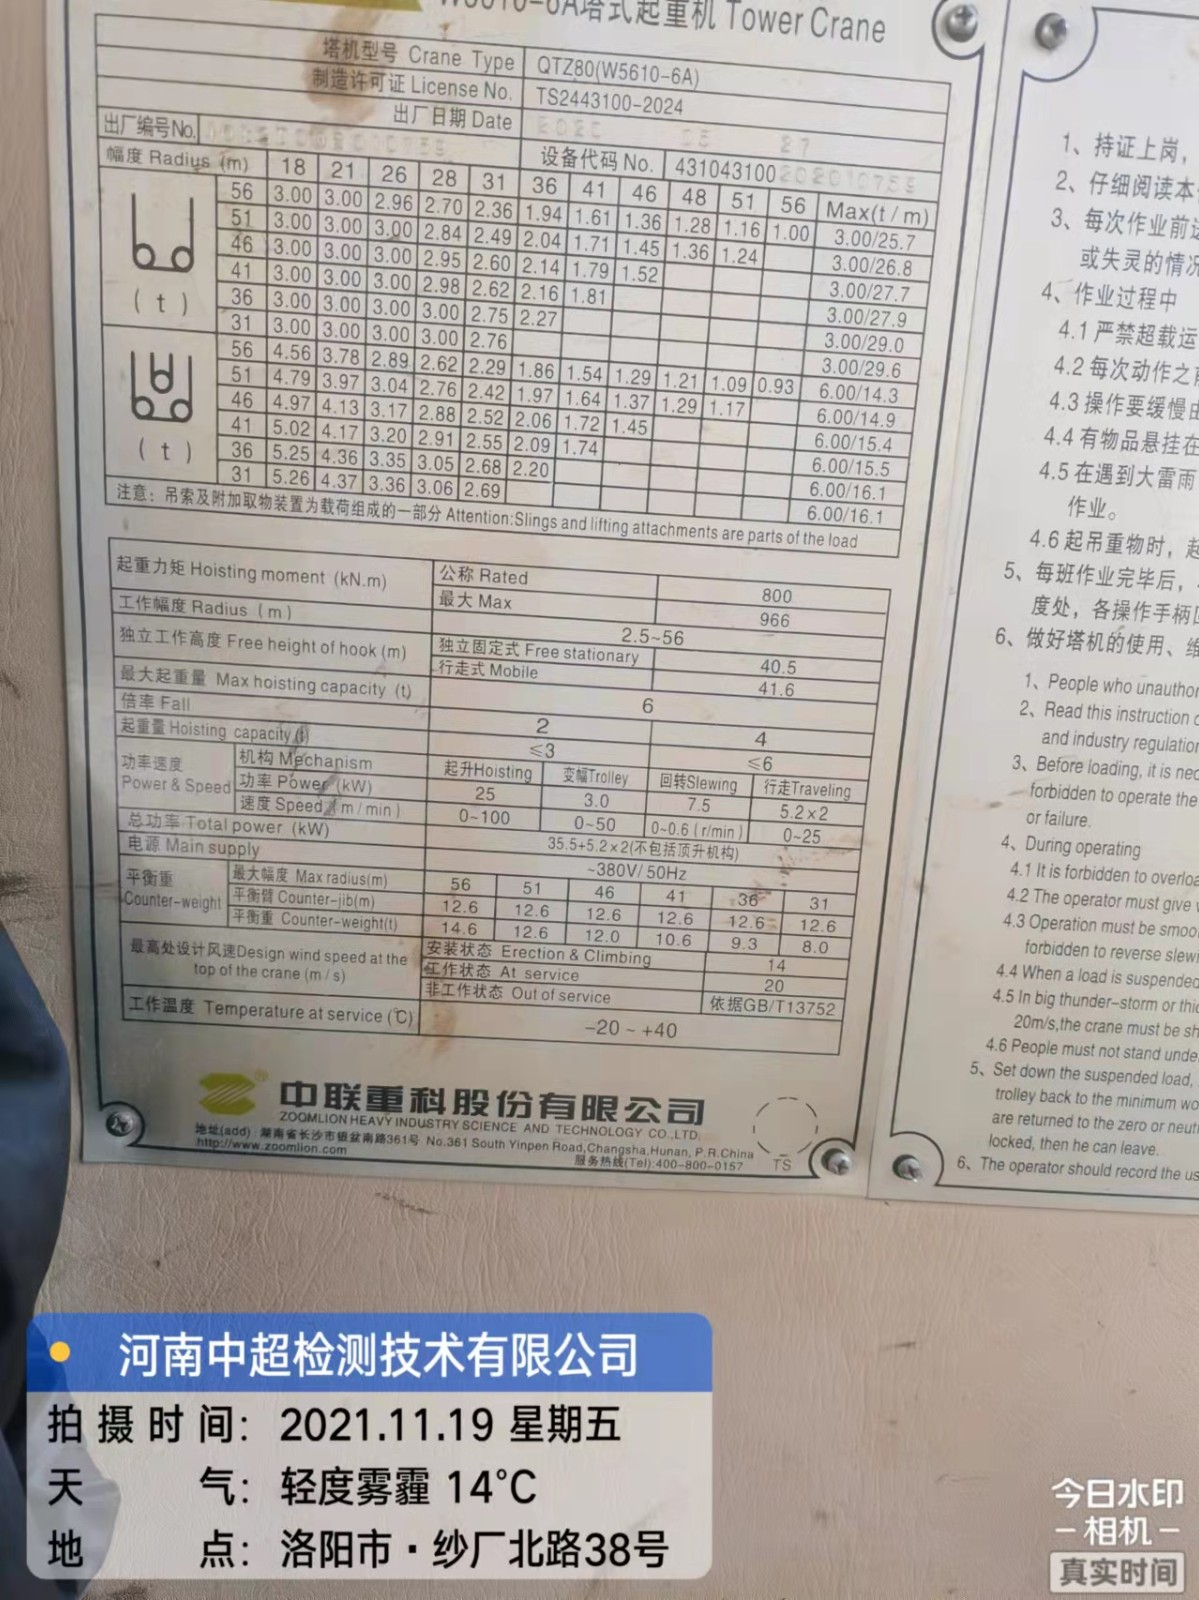 W5610-6A塔式起重机 Tower Crane
塔机型号 Crane Type QTZ80(W5610-6A)
制造许可证 License No. TS2443100-2024
出厂日期 Date
出厂编号No. 设备代码 No. 431043100
幅度 Radius (m) 18 21 26 28 31 36 41 46 48 51 56 Max(t/m)
(t)
56 3.00 3.00 2.96 2.70 2.36 1.94 1.61 1.36 1.28 1.16 1.00 3.00/25.7
51 3.00 3.00 3.00 2.84 2.49 2.04 1.71 1.45 1.36 1.24 3.00/26.8
46 3.00 3.00 3.00 2.95 2.60 2.14 1.79 1.52 3.00/27.7
41 3.00 3.00 3.00 2.98 2.62 2.16 1.81 3.00/27.9
36 3.00 3.00 3.00 3.00 2.75 2.27 3.00/29.0
31 3.00 3.00 3.00 3.00 2.76 3.00/29.6
(t)
56 4.56 3.78 2.89 2.62 2.29 1.86 1.54 1.29 1.21 1.09 0.93 6.00/14.3
51 4.79 3.97 3.04 2.76 2.42 1.97 1.64 1.37 1.29 1.17 6.00/14.9
46 4.97 4.13 3.17 2.88 2.52 2.06 1.72 1.45 6.00/15.4
41 5.02 4.17 3.20 2.91 2.55 2.09 1.74 6.00/15.5
36 5.25 4.36 3.35 3.05 2.68 2.20 6.00/16.1
31 5.26 4.37 3.36 3.06 2.69 6.00/16.1
注意：吊索及附加取物装置为载荷组成的一部分 Attention:Slings and lifting attachments are parts of the load
起重力矩 Hoisting moment (kN.m) 公称 Rated 800
最大 Max 966
工作幅度 Radius (m) 2.5~56
独立工作高度 Free height of hook (m) 独立固定式 Free stationary 40.5
行走式 Mobile 41.6
最大起重量 Max hoisting capacity (t) 6
倍率 Fall 2 4
起重量 Hoisting capacity(t) ≤3 ≤6
功率速度 Power & Speed 机构 Mechanism 起升Hoisting 变幅Trolley 回转Slewing 行走Traveling
功率 Power (kW) 25 3.0 7.5 5.2×2
速度 Speed (m/min) 0~100 0~50 0~0.6 (r/min) 0~25
总功率 Total power (kW) 35.5+5.2×2(不包括顶升机构)
电源 Main supply ~380V/50Hz
平衡重 Counter-weight 最大幅度 Max radius(m) 56 51 46 41 36 31
平衡臂 Counter-jib(m) 12.6 12.6 12.6 12.6 12.6 12.6
平衡重 Counter-weight(t) 14.6 12.6 12.0 10.6 9.3 8.0
最高处设计风速Design wind speed at the top of the crane (m/s) 安装状态 Erection & Climbing 14
工作状态 At service 20
非工作状态 Out of service 依据GB/T13752
工作温度 Temperature at service (℃) -20 ~ +40
中联重科股份有限公司
ZOOMLION HEAVY INDUSTRY SCIENCE AND TECHNOLOGY CO.,LTD.
地址(add)：湖南省长沙市银盆南路361号 No.361 South Yinpen Road,Changsha,Hunan, P.R.China
http://www.zoomlion.com 服务热线(Tel):400-800-0157
TS
1、持证上岗，
2、仔细阅读本
3、每次作业前
或失灵的情况
4、作业过程中
4.1 严禁超载运
4.2 每次动作之前
4.3 操作要缓慢由
4.4 有物品悬挂在
4.5 在遇到大雷雨
作业。
4.6 起吊重物时，起
5、每班作业完毕后，
度处，各操作手柄
6、做好塔机的使用、维
1、People who unauthor
2、Read this instruction
and industry regulation
3、Before loading, it is nec
forbidden to operate the
or failure.
4、During operating
4.1 It is forbidden to overloa
4.2 The operator must give
4.3 Operation must be smoo
forbidden to reverse slewi
4.4 When a load is suspended
4.5 In big thunder-storm or thic
20m/s,the crane must be sh
4.6 People must not stand unde
5、Set down the suspended load,
trolley back to the minimum wo
are returned to the zero or neut
locked, then he can leave.
6、The operator should record the us
河南中超检测技术有限公司
拍摄时间：2021.11.19 星期五
天气：轻度雾霾 14℃
地点：洛阳市·纱厂北路38号
今日水印
-相机-
真实时间